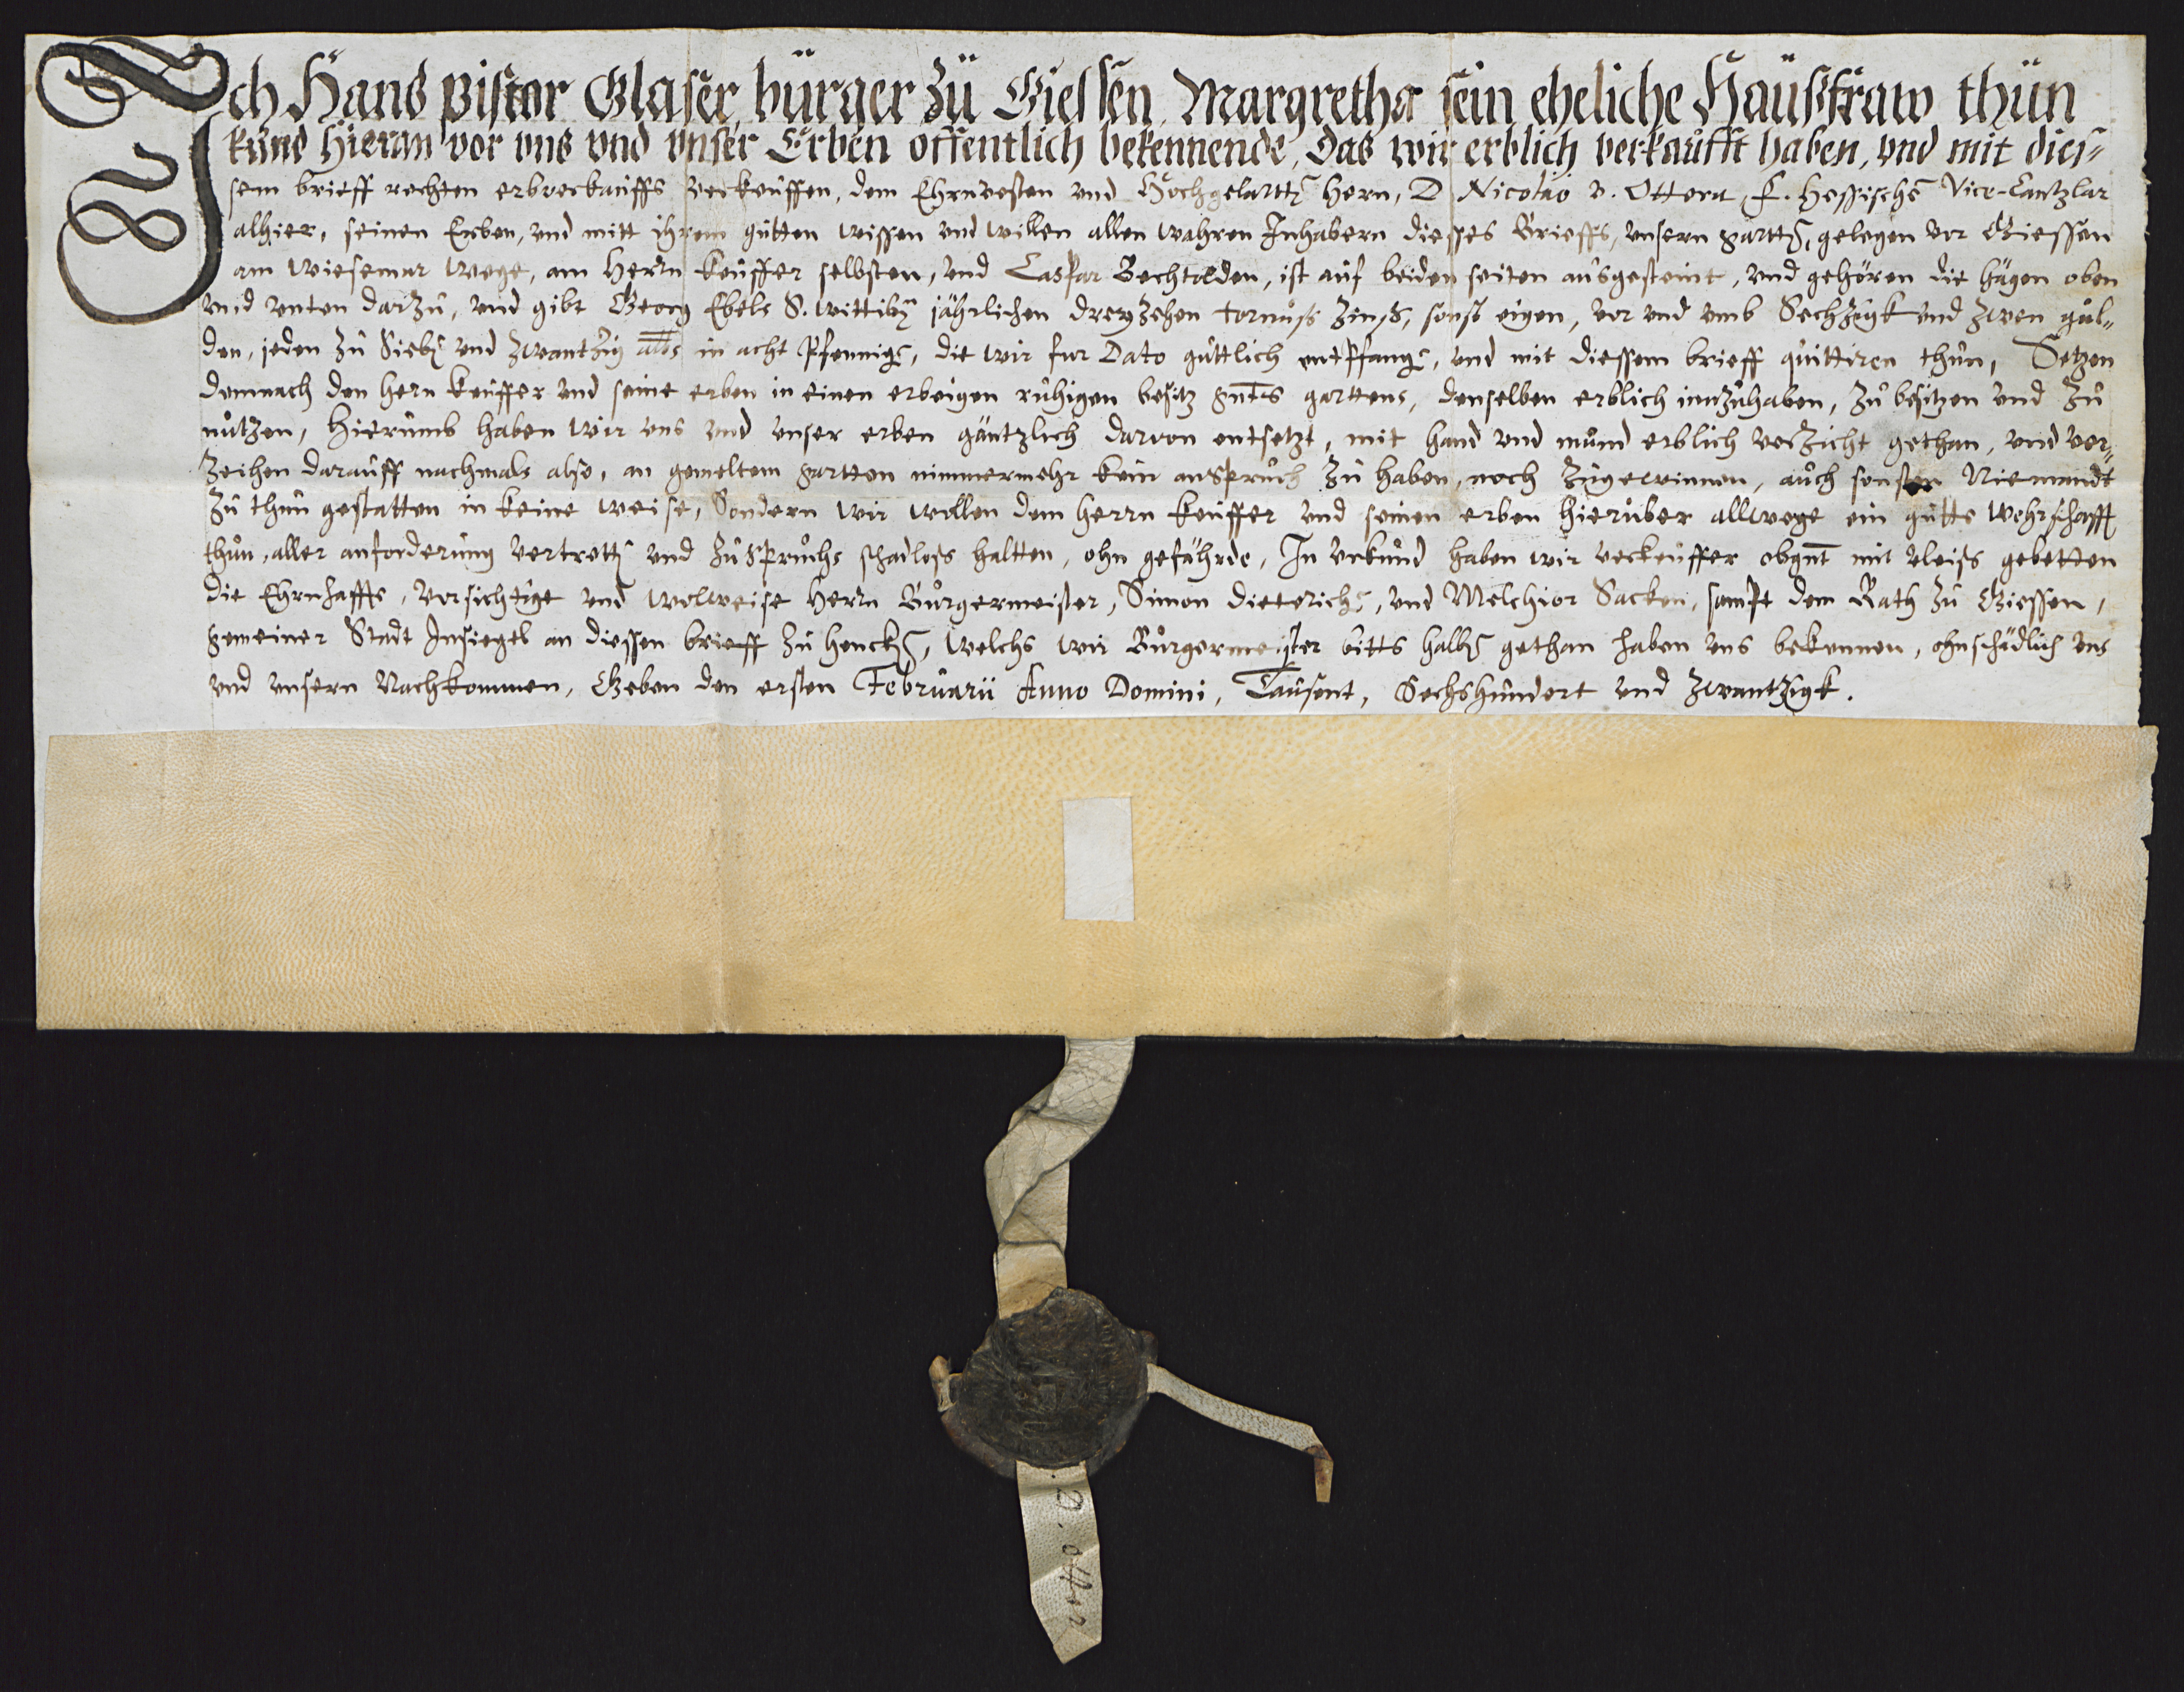 Ich Hans Pistor Glaser, burger zu Giessen, Margretha sein eheliche Haußfraw thun
kund hieran vor vns vnd vnser Erben offentlich bekennende, Das wir erblich verkaufft haben, vnd mit dies-
sem brieff rechten erbverkauffs verkeuffen, dem Ehrnvesten vnd Hochgelartten Hern, D. Nicolao v. Ottera, F. Hessischen Vice-Cantzlar
alhier, seinen Erben, vnd mitt ihrem gutten wissen vnd willen allen wahren Inhabern diesses Brieffs, vnsern gartten, gelegen vor Giessen
am Wiesemar wege, am Herrn Keuffer selbsten, vnd Caspar Bechtolden, ist auf beiden seiten ausgesteint, vnd gehören die hägen oben
vnd vnten darzu, vnd gibt Georg Ebels S. wittiben jährlichen dreyzehen tornuß zinß, sonst eigen, vor vnd vmb Sechzigk vnd zwen gul-
den, jeden zu Sieben vnd zwantzig albs in acht Pfennigen, die wir fur Dato guttlich entpfangen, vnd mit diessem brieff quittiren thun, Setzen
demnach den Hern Keuffer vnd seine erben in einen erbeigen ruhigen besitz gnts gartens, denselben erblich innzuhaben, zu besitzen vnd zu
nutzen, Hierumb haben wir vns vnd vnser erben gäntzlich darvon entsetzt, mit hand vnd mund erblich verzicht gethan, vnd ver-
zeihen darauff nachmals also, an gemeltem gartten nimmermehr kein anspruch zu haben, noch zugewinnen, auch sonsten Niemandt
zu thun gestatten in keine weise, Sondern wir wollen dem Herrn Keuffer vnd seinen erben hieruber allwege ein gutte wehrschafft
thun, aller anforderung vertretten vnd zuspruchs schadloß haltten, ohn gefährde, In vrkund haben wir verkeuffer obgnt mit vleiß gebetten
die Ehrnhaffte, Vorsichtige vnd wolweise Herrn Burgermeister, Simon Dieterichen, vnd Melchior Sacken, sampt dem Rath zu Giessen,
gemeiner Stadt Insiegel an diessen brieff zu hencken, welchs wir Burgermeister bitts halben gethan haben vns bekennen, ohnschädlich vns
vnd vnsern Nachkommen, Geben den ersten Februarii Anno Domini, Tausent, Sechshundert vnd zwantzigk.
D. Otter